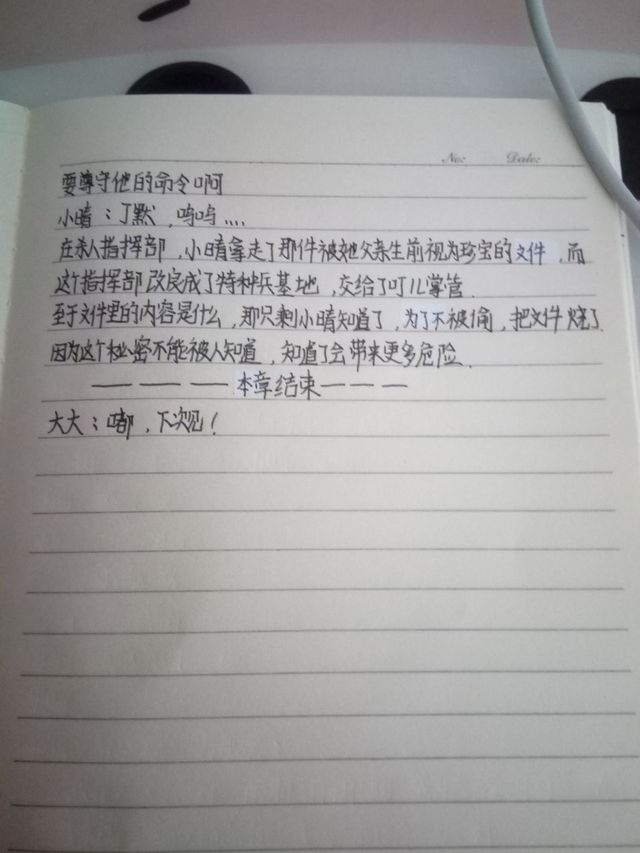 No:  Date:
要尊守他的命令啊
小晴：丁默，呜呜....
在杀人指挥部，小晴拿走了那件被她父亲生前视为珍宝的文件，而
这个指挥部改良成了特种兵基地，交给了叮儿掌管.
至于文件里的内容是什么，那只剩小晴知道了，为了不被偷，把文件烧了.
因为这个秘密不能被人知道，知道了会带来更多危险.
———本章结束———
大大：嘟，下次见！